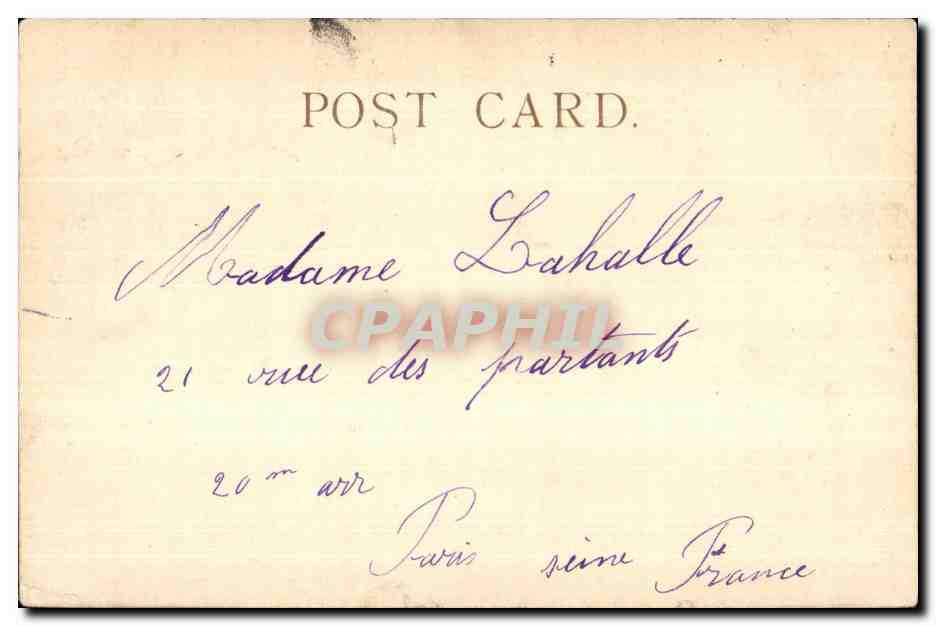 POST CARD.
Madame Lahalle
CPAPHIL
21 rue des partants
20m arr
Paris seine France